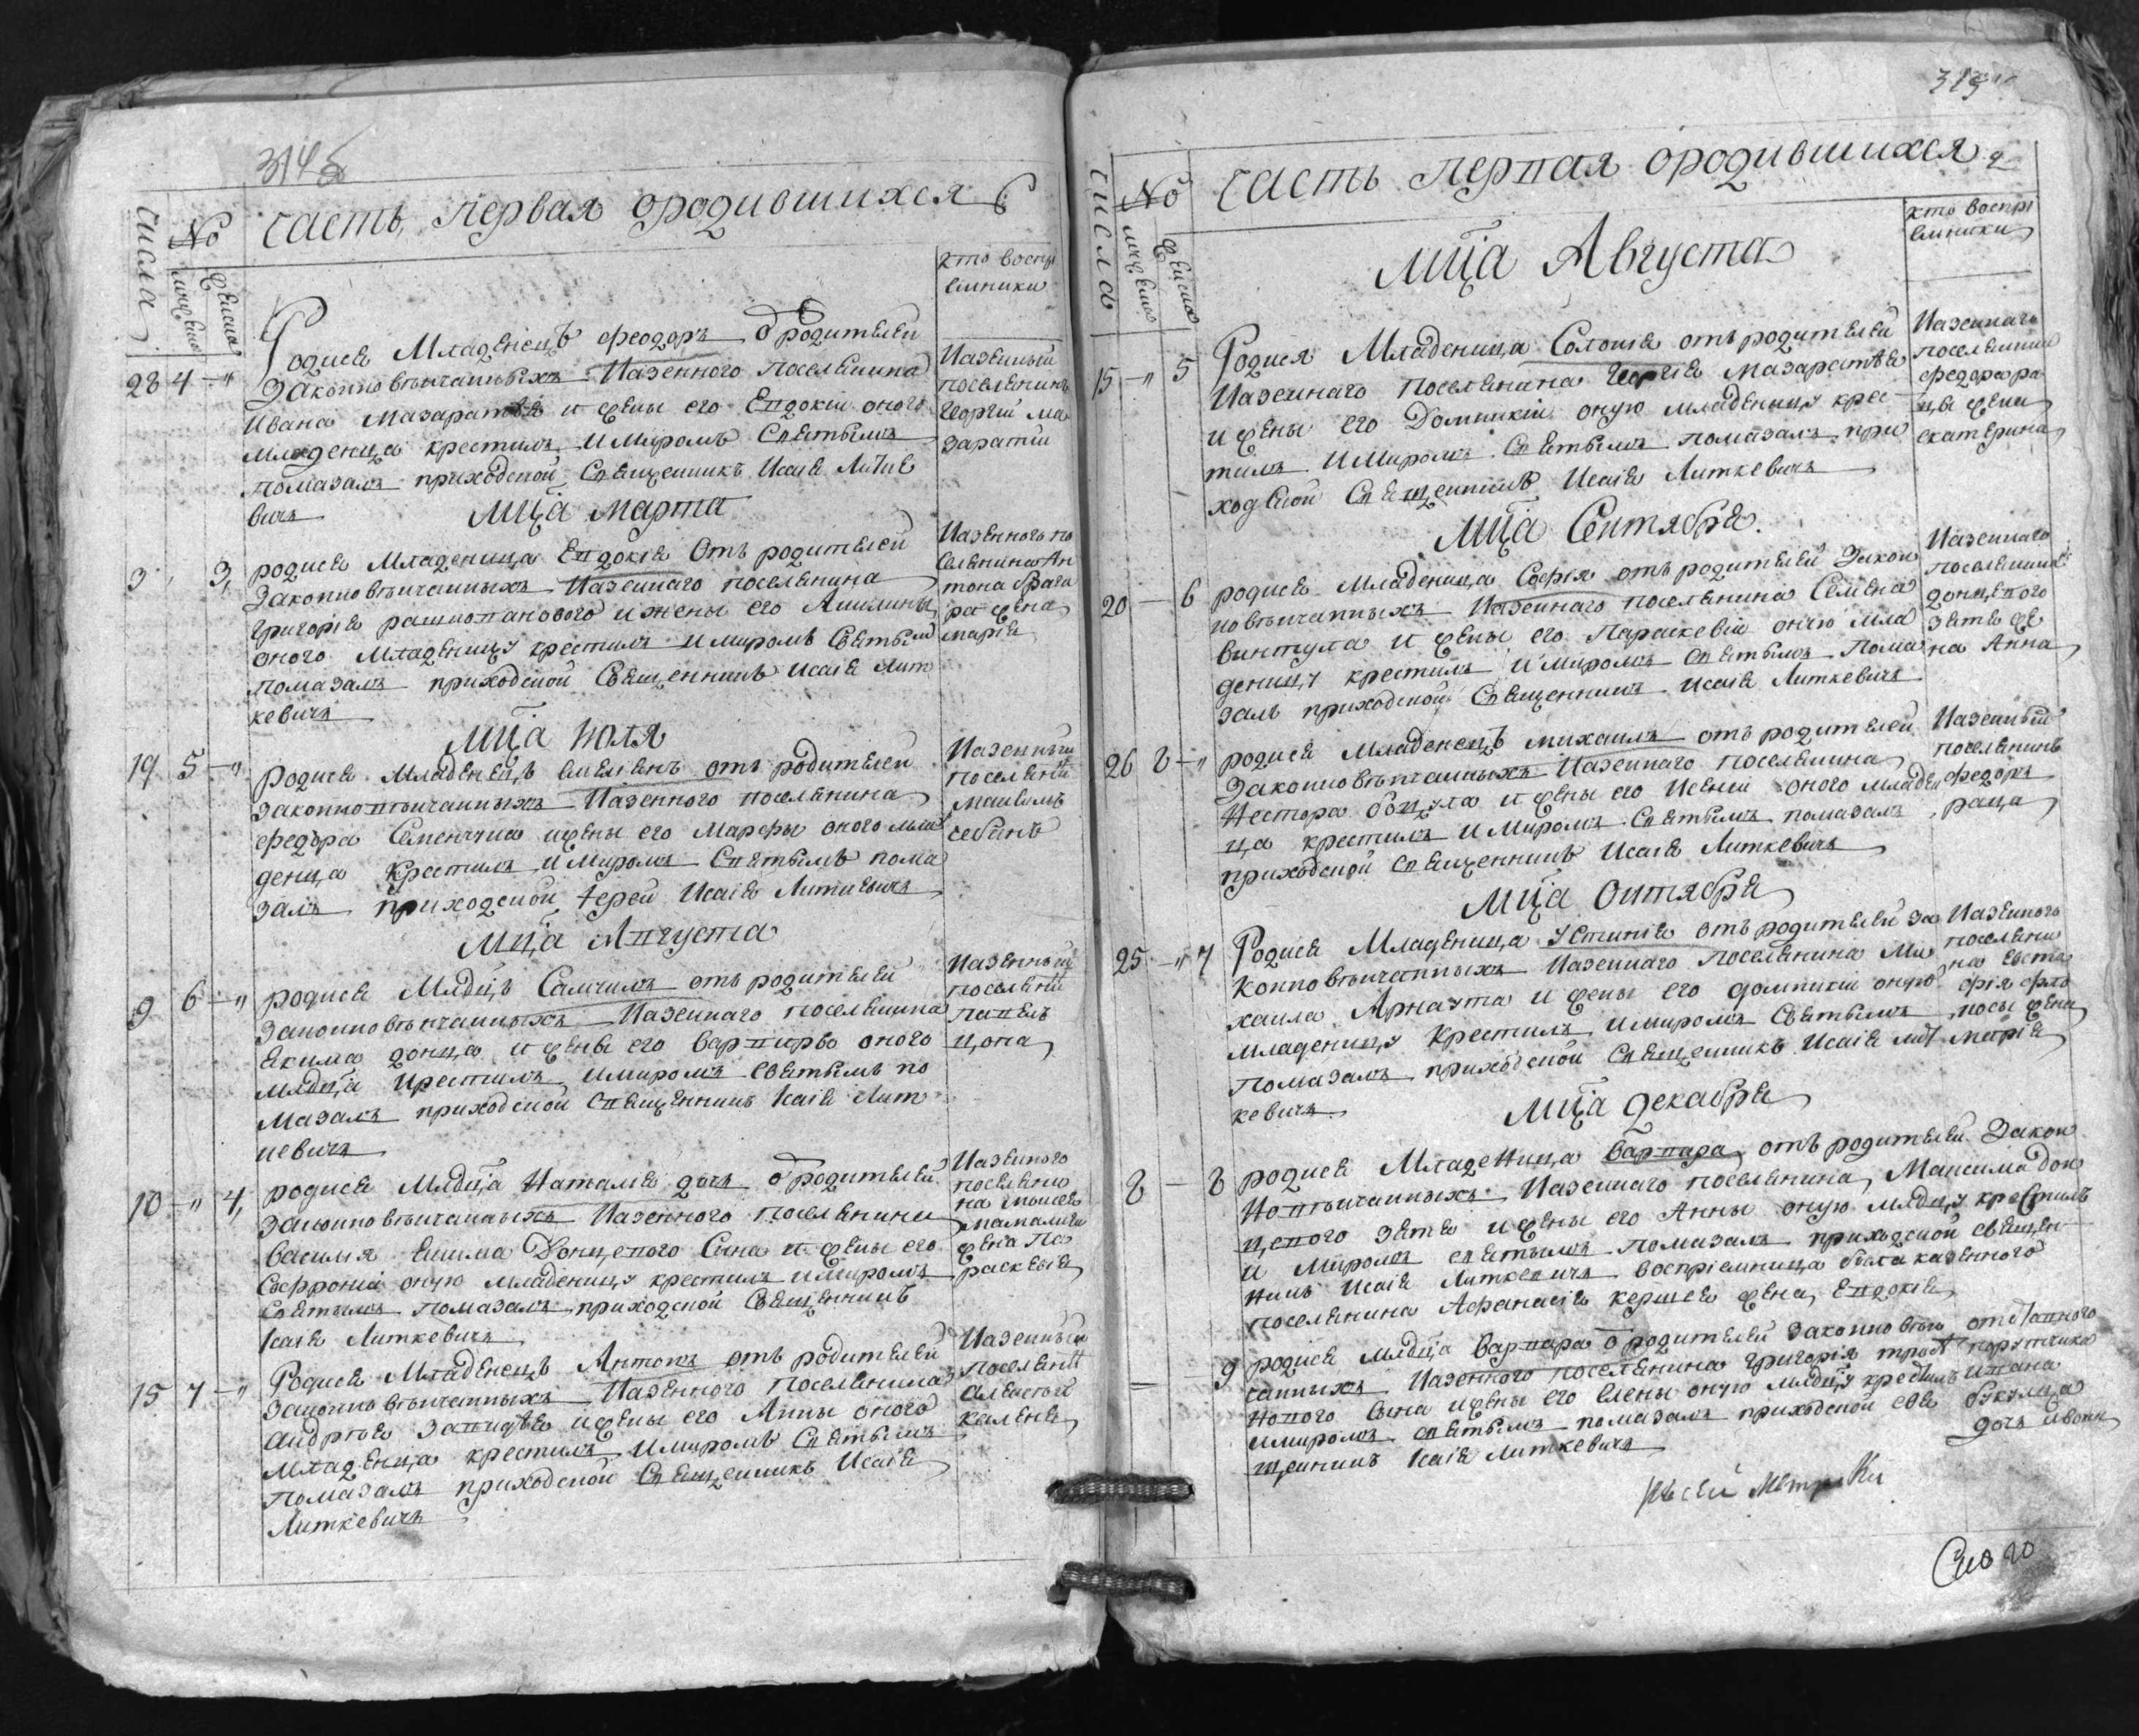 314б
числа
№
мужеска
женска
часть первая ородившихся
кто воспрі
емники
28 4 — "
Родися Младенецъ феодоръ ѿ родителей
Законновѣнчанныхъ Казенного поселянина
Ивана Мазаратѣя и жены его Евдокіи оного
младенца крестилъ и Миромъ Святымъ
помазалъ приходской Священникъ Исаія Литке
вичъ
Казенный
поселянинъ
Георгій Ма
заратій
Мца марта
3 " 3
родися Младеница Евдокія Отъ родителей
Законновѣнчанныхъ Казеннаго поселянина
григорія рашпопанового и жены его Акилины
оного Младеницу крестилъ и миромъ Святымъ
помазалъ приходской Священникъ Исаія Лит
кевичъ
Казенного по
селянина Ан
тона
ра жена
марія
Мца Юля
19 5 — "
родися Младенецъ емелянъ отъ родителей
законновѣнчанныхъ Казенного поселянина
федора Семенчука и жены его Марфы оного мла
денца Крестилъ и Миромъ Святымъ пома
залъ приходской Іерей Исаія Литкевичъ
Казенный
поселянӣ
Мца Августа
9 6 — "
родися Млдцъ Самуилъ отъ родителей
Законновѣнчанныхъ Казеннаго поселянина
Якима донца и жены его Варвары оного
млдца крестилъ и миромъ святымъ по
мазалъ приходской священникъ Ісаія Лит
кевичъ
Казенный
поселянӣ
павелъ
цопа
10 — " 4
родися Млдца Наталія дочь ѿ родителей
Законновѣнчанныхъ Казенного поселянина
василия Екима Донцевого Сына и жены его
Сафроніи оную младеницу крестилъ и миромъ
святымъ помазалъ приходской Священникъ
Ісаія Литкевичъ
Казенного
поселяни
на моисея
мамалиги
жена Па
раскевія
15 7 — "
Родися Младенецъ Антонъ отъ родителей
Законновѣнчанныхъ Казенного поселянина
андрѣя и жены его Анны оного
младенца крестилъ и миромъ Святымъ
помазалъ приходской Священникъ Исаія
Литкевичъ
Казенный
поселянӣ
Алексѣй
каленя
315
числа
№
мужеска
женска
часть первая ородившихся
кто воспрі
емники
мца Августа
15 — " 5
Родися Младеница Соломія отъ родителей
Казеннаго поселянина Георгія Мазаратѣя
и жены его Домникіи оную младеницу крес
тилъ и Миромъ Святымъ помазалъ при
ходской Священникъ Исаія Литкевичъ
Казеннаго
поселянина
федора ра
цы жена
екатерина
мца Сентября
20 — 6
родися Младеница Софія отъ родителей Закон
новѣнчанныхъ Казеннаго поселянина Семена
винтула и жены его Параскевіи оную мла
деницу крестилъ и миромъ святымъ пома
залъ приходской Священникъ Исаія Литкевичъ
Казеннаго
поселянина
донцевого
зятя же
на Анна
26 8 — "
родися Младенецъ михаилъ отъ родителей
Законновѣнчанныхъ Казеннаго поселянина
Нестора боцула и жены его Ксеніи оного младен
ца крестилъ и Миромъ Святымъ помазалъ
приходской священникъ Исаія Литкевичъ
Казенный
поселянинъ
федоръ
раца
мца октября
25 — " 7
Родися Младеница Устинія отъ родителей за
конновѣнчанныхъ Казеннаго поселянина Ми
хаила Арнаута и жены его домникіи оную
младеницу Крестилъ и миромъ Святымъ
помазалъ приходской Священникъ Исаія Лит
кевичъ
Казенного
поселяни
на евста
фія
жена
марія
мца декабря
8 — 8
родися Младеница варвара отъ родителей Закон
новѣнчанныхъ Казеннаго поселянина Максима дон
цевого зятя и жены его Анны оную млдцу крестилъ
и Миромъ святымъ помазалъ приходской священ
никъ Исаія Литкевичъ воспріемница была казенного
поселянина Афанасія кершея жена Евдокія
— — 9
родися млдца варвара ѿ родителей законновѣн
чанныхъ Казенного поселянина григорія
нового сына и жены его елены оную млдцу крестилъ
и миромъ святымъ помазалъ приходской свя
щенникъ Ісаія Литкевичъ
отставного
порутчика
ивана
дочь
Сего 20